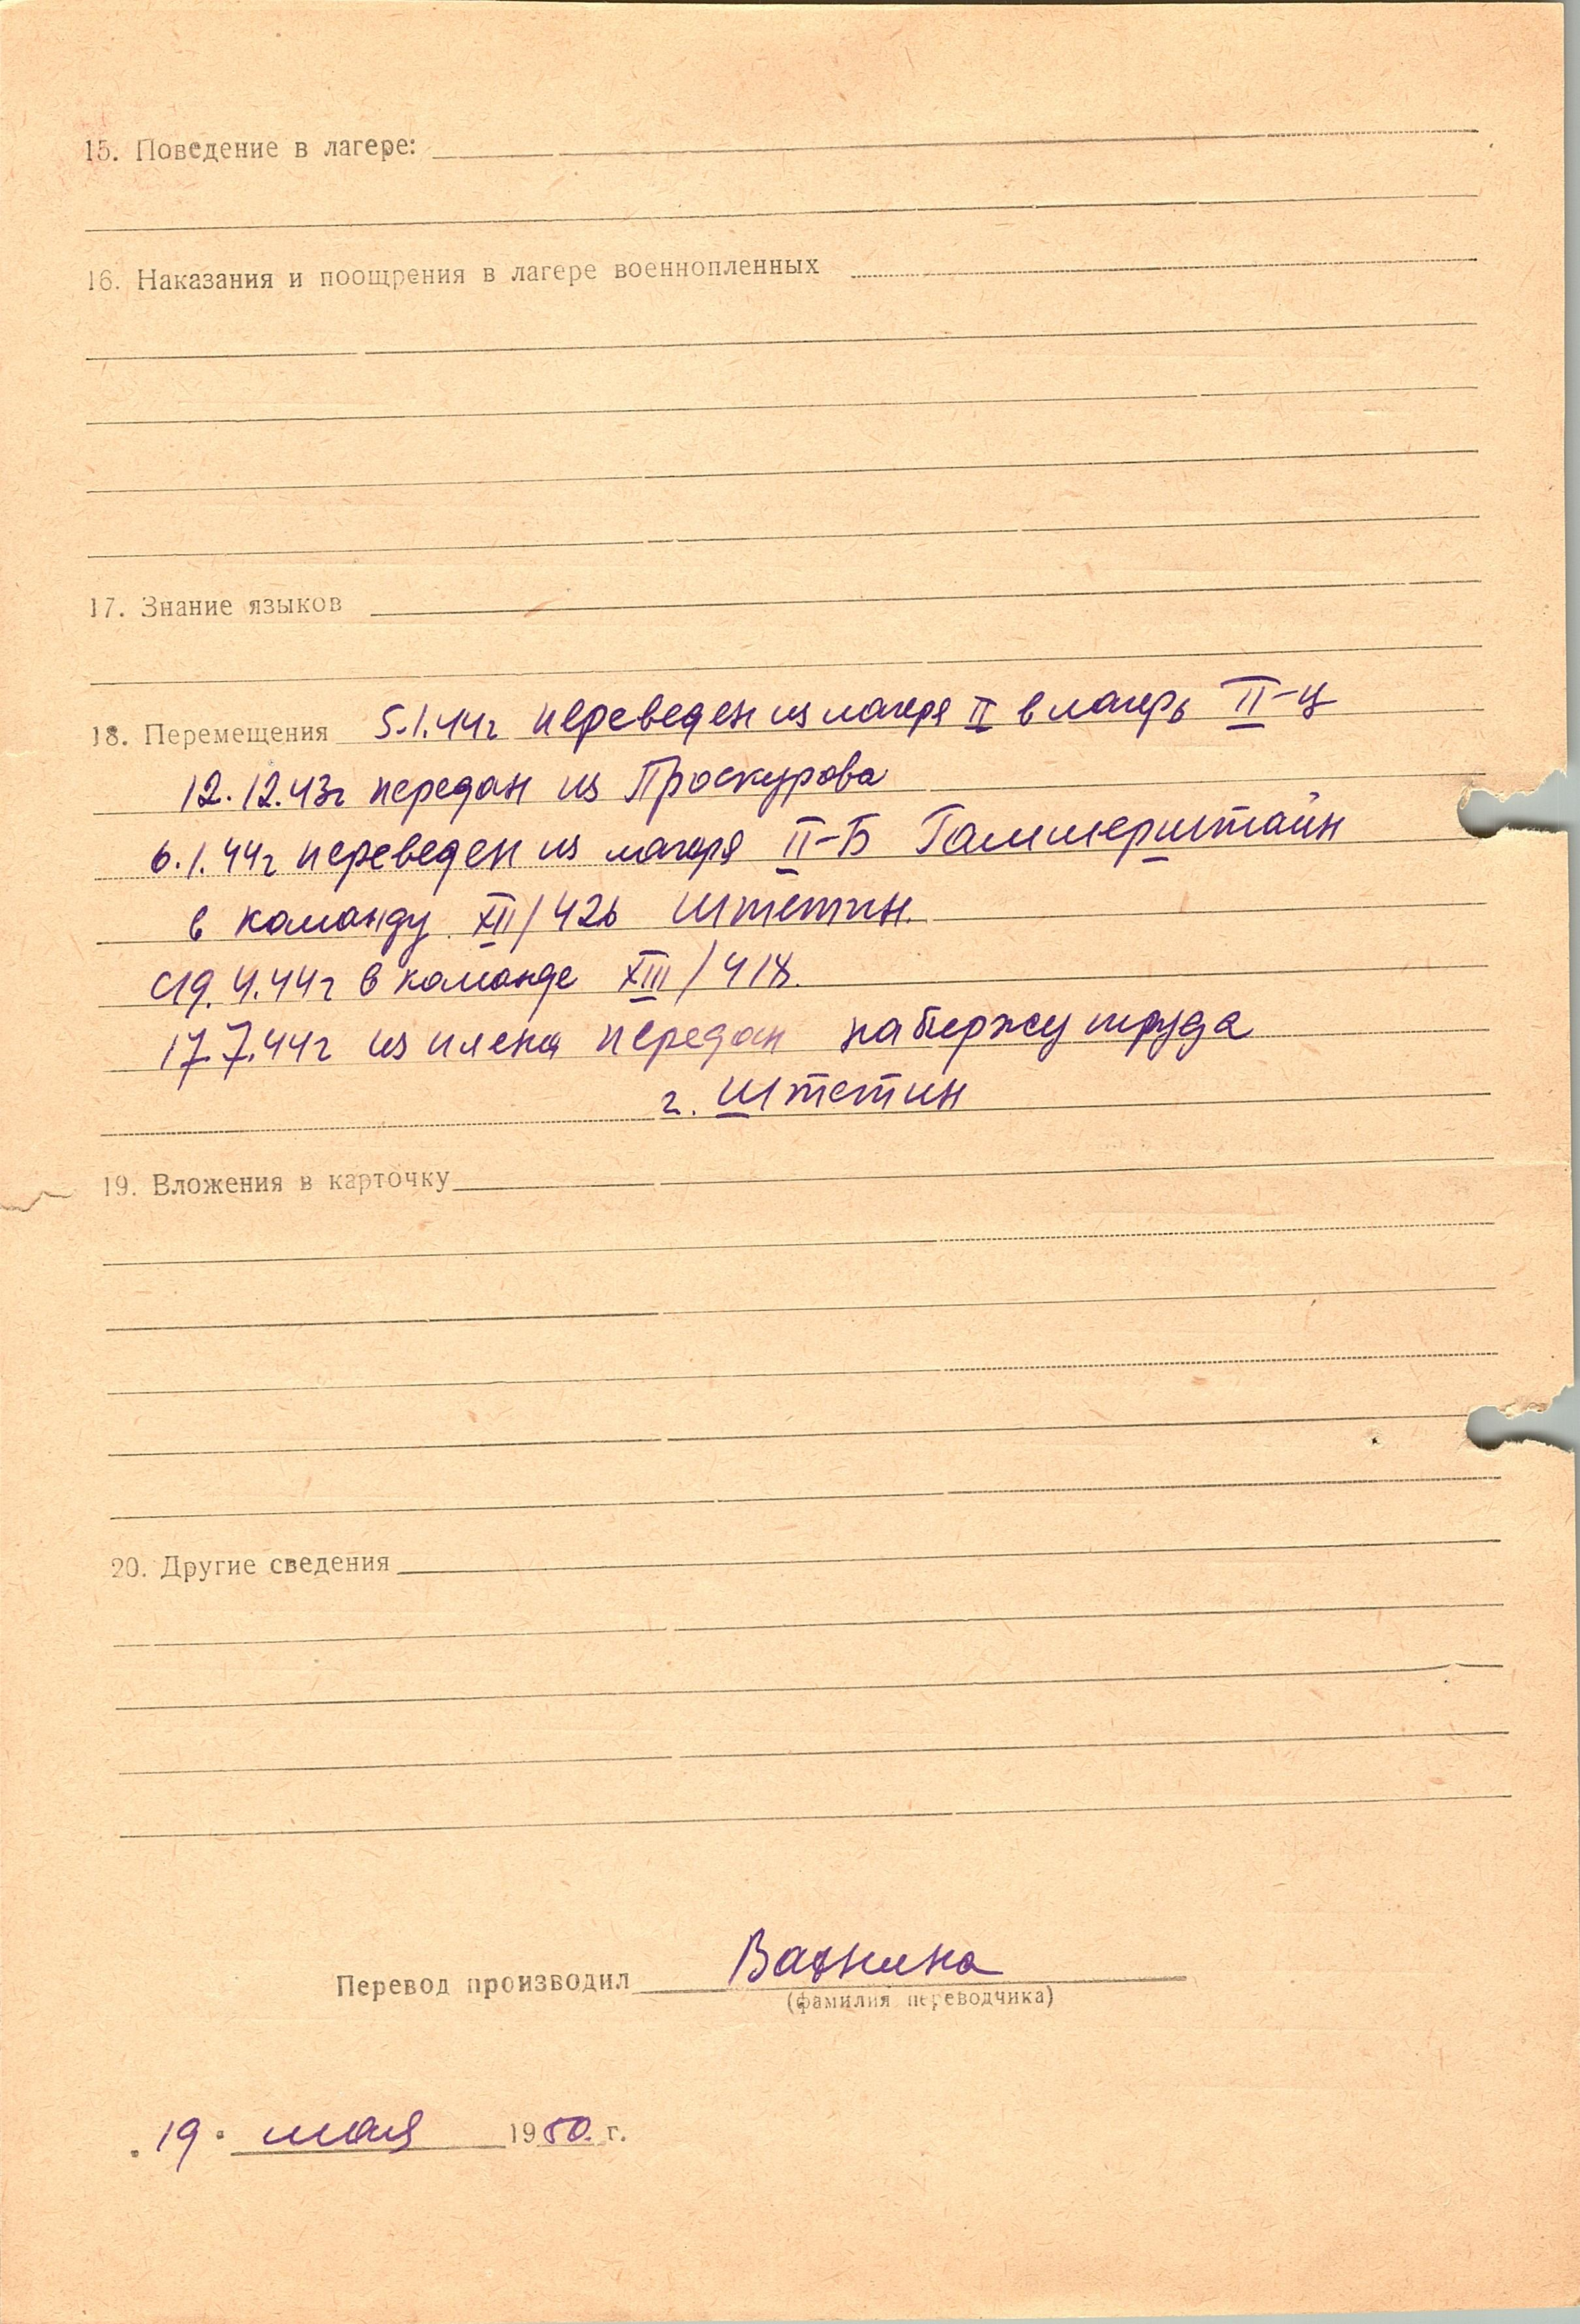 15. Поведение в лагере:
16. Наказания и поощрения в лагере военнопленных
17. Знание языков
18. Перемещения 5.1.44г переведен из лагеря II в лагерь II-ц
12.12.43г передан из Проскурова
6.1.44г переведен из лагеря II-Б Гаммерштайн
в команду XII/426 Штетин.
С 19.4.44г в команде XIII/418.
17.7.44г из плена передан на биржу труда
г. Штетин
19. Вложения в карточку
20. Другие сведения
Перевод производил
(фамилия переводчика)
19. мая 1950. г.